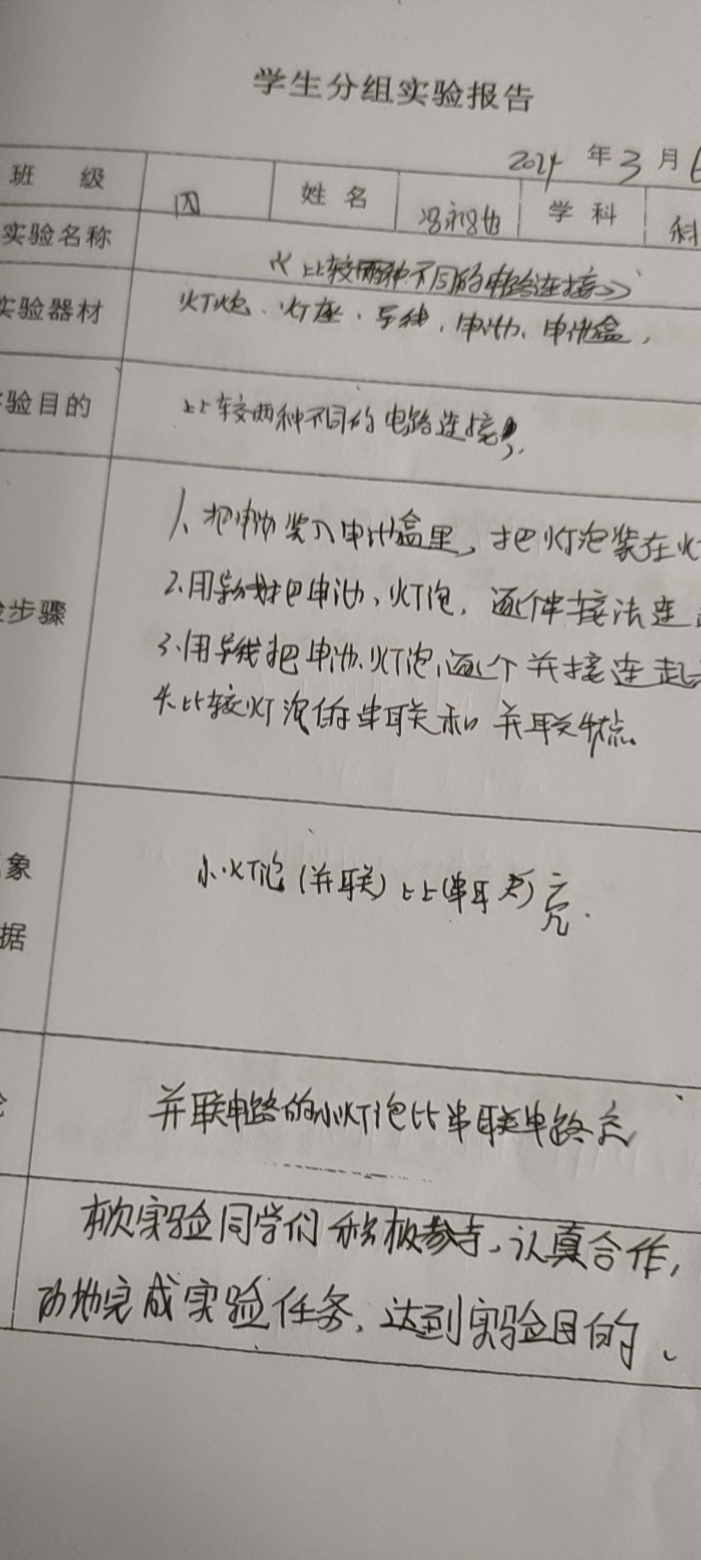 学生分组实验报告
2024年3月6
班 级 四 姓 名 学 科 科
实验名称 《比较两种不同的电路连接》
实验器材 灯泡、灯座、导线、电池、电池盒,
验目的 比较两种不同的电路连接
步骤 1、把电池装入电池盒里,把灯泡装在火
2.用导线把电池、灯泡,逐个串接法连
3.用导线把电池、灯泡,逐个并接连起
4.比较灯泡的串联和并联特点。
象 小灯泡(并联)比(串联)亮.
据
论 并联电路的小灯泡比串联电路亮
本次实验同学们积极参与,认真合作,
功地完成实验任务,达到实验目的、